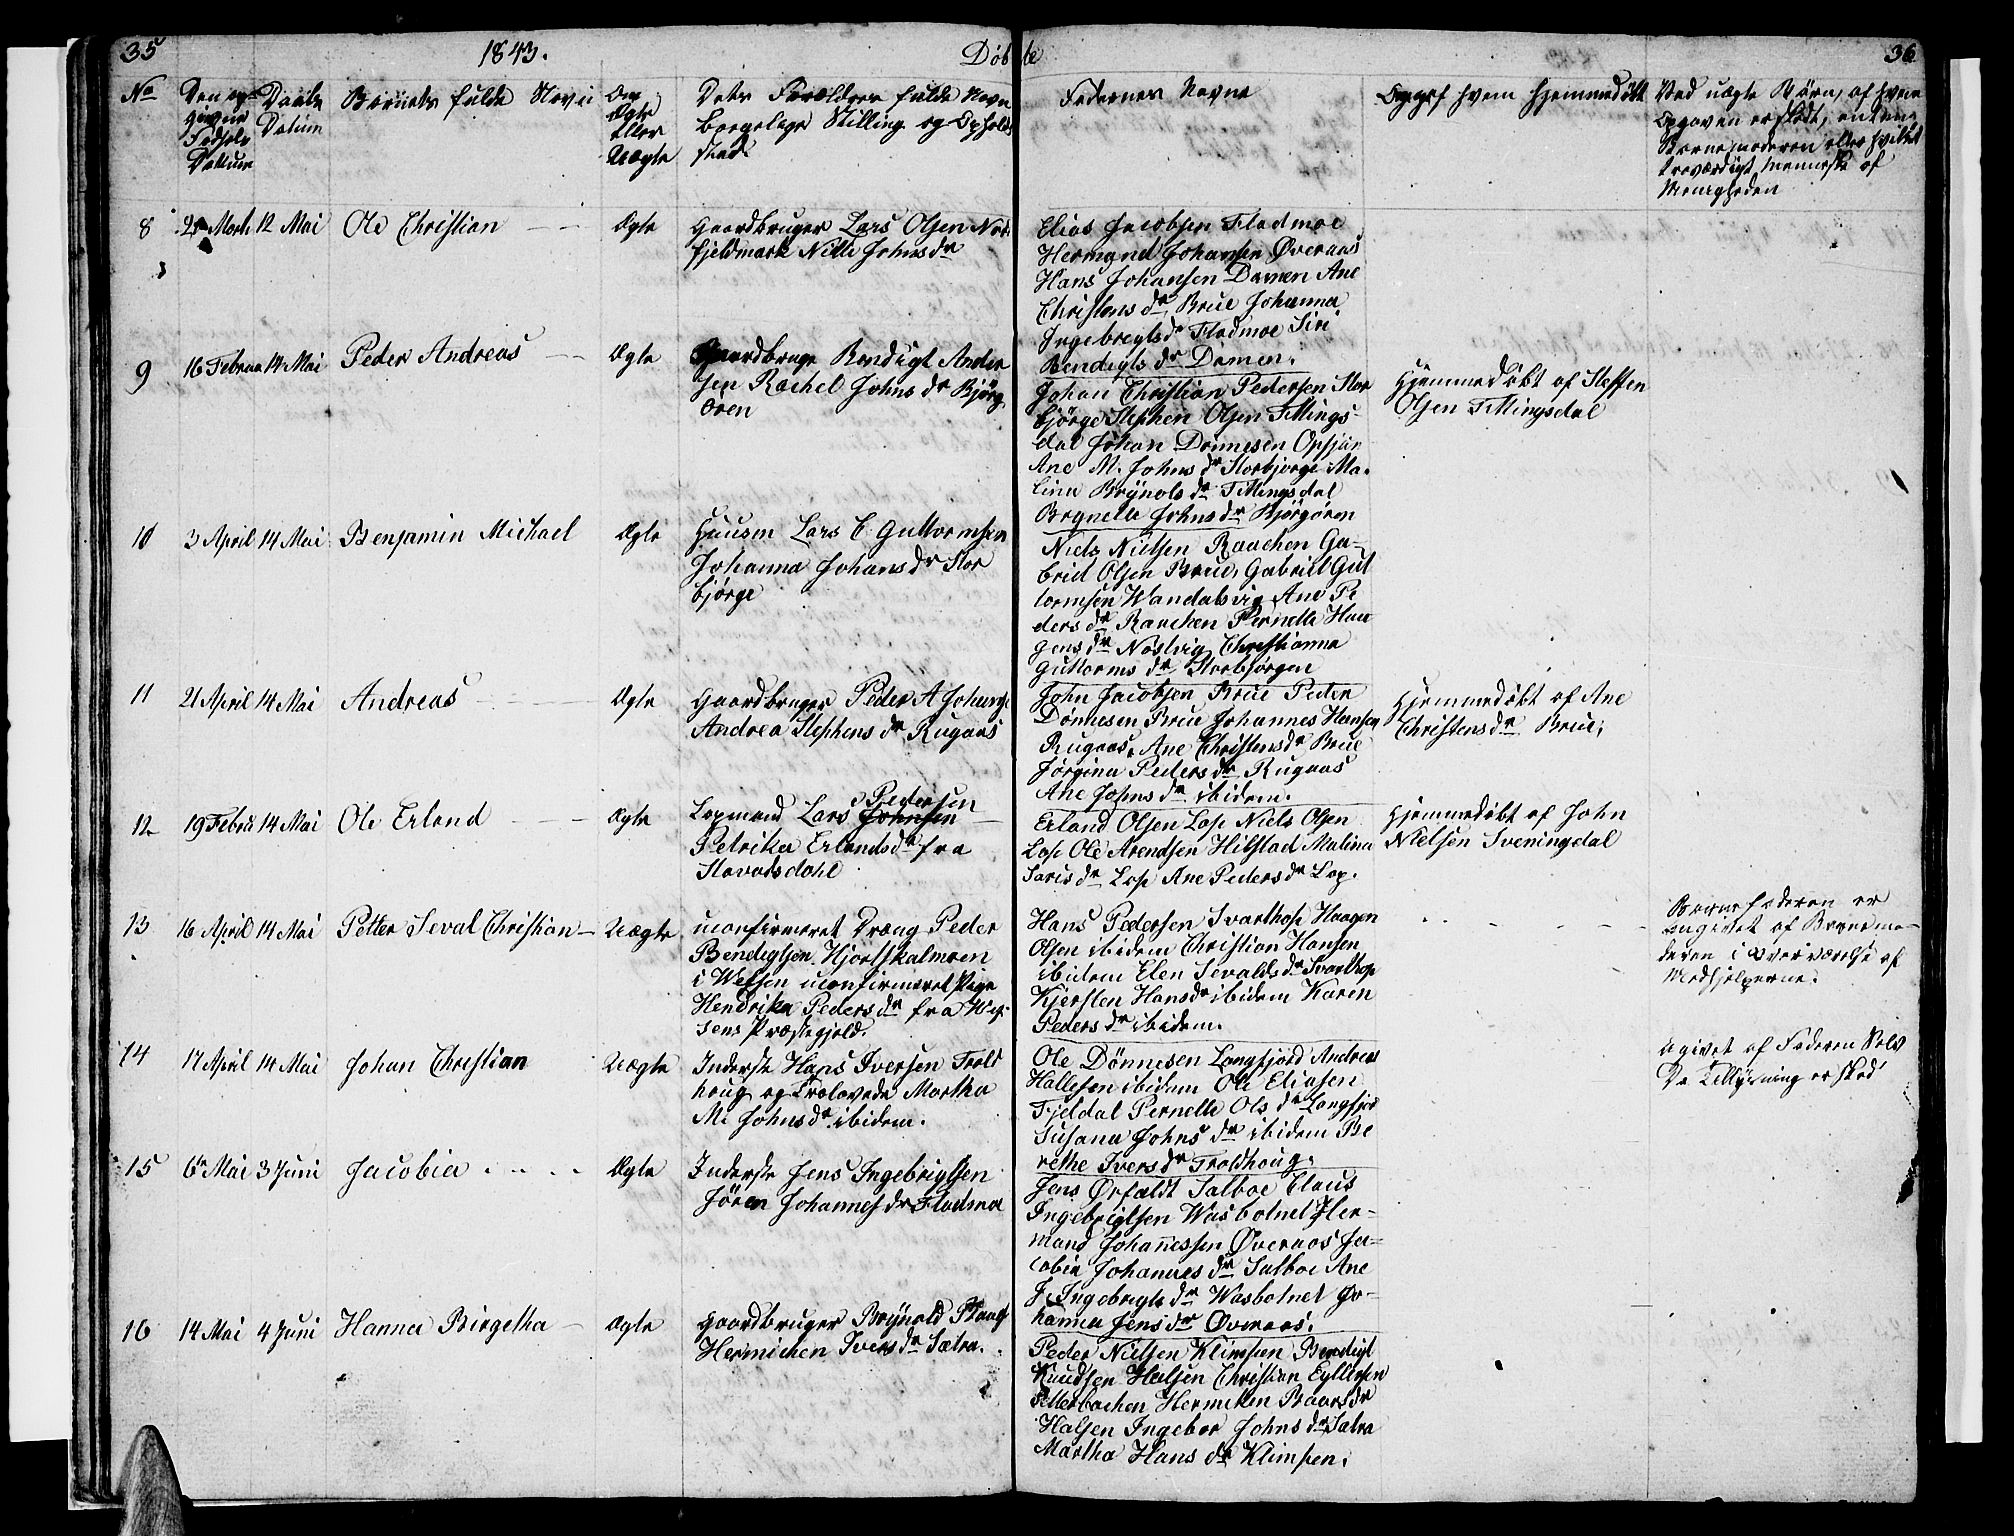 35
1843.
Döbte
36
No
Den op-
givne
Födsels
Dattum
Daabs
Datum
Barnets fulde Navn
Om
Ægte
Eller
Uægte
Dets Forældres fulde Navn
Borgelige Stilling og Opholds
sted
Fadernes Navne
Opgif hvem hjemmedöbt
Ved uægte Börn, af hvem
Opgaven er skedt, enten
Barnemoderen eller hvilket
troværdigt Menneske af
Menigheden
8
21 Marts 12 Mai
Ole Christian
Ægte
Gaardbruger Lars Olsen Nord
fjeldmark Nille Johnsdr
Elias Jacobsen Fladmoe
Hermand Johansen Øveraas
Hans Johansen Damen Ane
Christensdr Brue Johanna
Ingebregtsdr Fladmoe Siri
Bendigtsdr Damen.
9
16 Februa 14 Mai
Peder Andreas
Ægte
Gaardbruge Bendigt Ander
sen Rachel Johnsdr Bjørg
ören
Johan Christian Pedersen Stor
björge Stephen Olsen Tittings-
dal Johan Dönnesen Opsjön
Ane M. Johnsdr Storbjörge Ma-
linu Brynolsdr Tittingsdal
Brynelle Johnsdr Bjørgören
Hjemmedöbt af Steffen
Olsen Tittingsdal
10
3 April 14 Mai
Benjamin Michael
Ægte
Huusm Lars C. Guttormsen
Johanna Johansdr Stor
bjørge
Niels Nielsen Raachen Ga-
briel Olsen Brue, Gabriel Gut
tormsen Wandalsvig Ane Pe
dersdr Raachen Pernelle Haa
gensdr Nösvig Christianna
Guttormsdr Storbjørgen
11
21 April 14 Mai
Andreas
Ægte
Gaardbruger Peder A Johans
Andrea Stephensdr Rugaas
John Jacobsen Brue Peder
Dönnesen Brue Johannes Hansen
Rugaas, Ane Christensdr Brue
Jörgina Pedersdr Rugaas
Ane Johnsdr ibidem.
Hjemmedöbt af Ane
Christensdr Brue,
12
19 Febru 14 Mai
Ole Erland
Ægte
Pedersen
Lapmand Lars Johnsen
Petrika Erlandsdr fra
Stavadsdahl
Erland Olsen Lap Niels Olsen
Lap Ole Arendsen Hilstad Malina
Larisdr Lap Ane Pedersdr Lap.
Hjemmedöbt af John
Nielsen Sveningdal
13
16 April 14 Mai
Petter Seval Christian
Uægte
uconfirmeret Dræng Peder
Bendigtsen Hjortskalmoen
i Wefsen uconfirmeret Pige
Hendrika Pedersdr fra Wef-
sens Præstegjeld.
Hans Pedersen Svarthop Haagen
Olsen ibidem Christian Hansen
ibidem Elen Sevaldsdr Svarthop
Kjersten Hansdr ibidem Karen
Pedersdr ibidem.
Barnefaderen er
angivet af Barnemo-
deren i overværelse af
Medhjelperne.
14
17 April 14 Mai
Johan Christian
Uægte
Inderste Hans Iversen Trold
houg og Trolovede Martha
M. Johnsdr ibidem.
Ole Dönnesen Langfjord Andreas
Hallesen ibidem Ole Eliasen
Fjeldal Pernelle Olsdr Langfjor
Susana Johnsdr ibidem Be
rethe Iversdr Troldhoug.
Agivet af Faderen Selv
Da Tillysning er sked
15
6te Mai 3 Juni
Jacobia
Ægte
Inderste Jens Ingebrigtsen
Jören Johannesdr Fladmoe
Jens Örfaldt Salboe Claus
Ingebrigtsen Wasbotnet Her-
mand Johannessen Øveraas Ja-
cobia Johannesdr Salboe Ane
J. Ingebrigtsdr Wasbotnet Jo-
hanna Jensdr Øveraas.
16
14 Mai 4 Juni
Hanna Birgetha
Ægte
Gaardbruger Brynold
Hermichen Iversdr Sætra.
Peder Nielsen Klimpen Bendigt
Knudsen Halsen Christian Eyllersen
Petterbachen Hermiken Baarsdr
Halsen Ingebor Johnsdr Sætra
Martha Hansdr Klimpen.